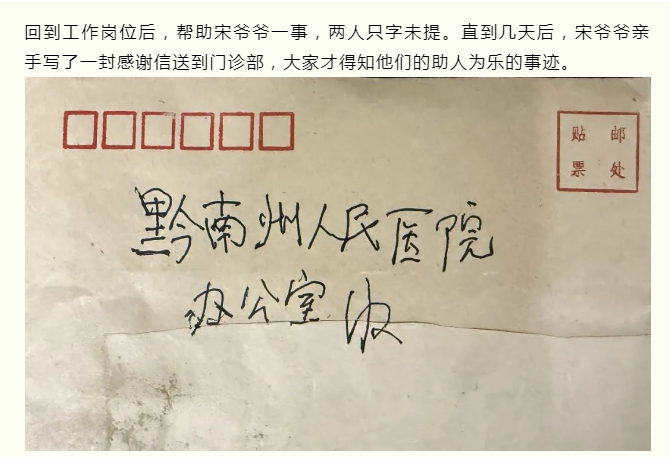 回到工作岗位后，帮助宋爷爷一事，两人只字未提。直到几天后，宋爷爷亲
手写了一封感谢信送到门诊部，大家才得知他们的助人为乐的事迹。
贴 邮
票 处
黔南州人民医院
办公室收